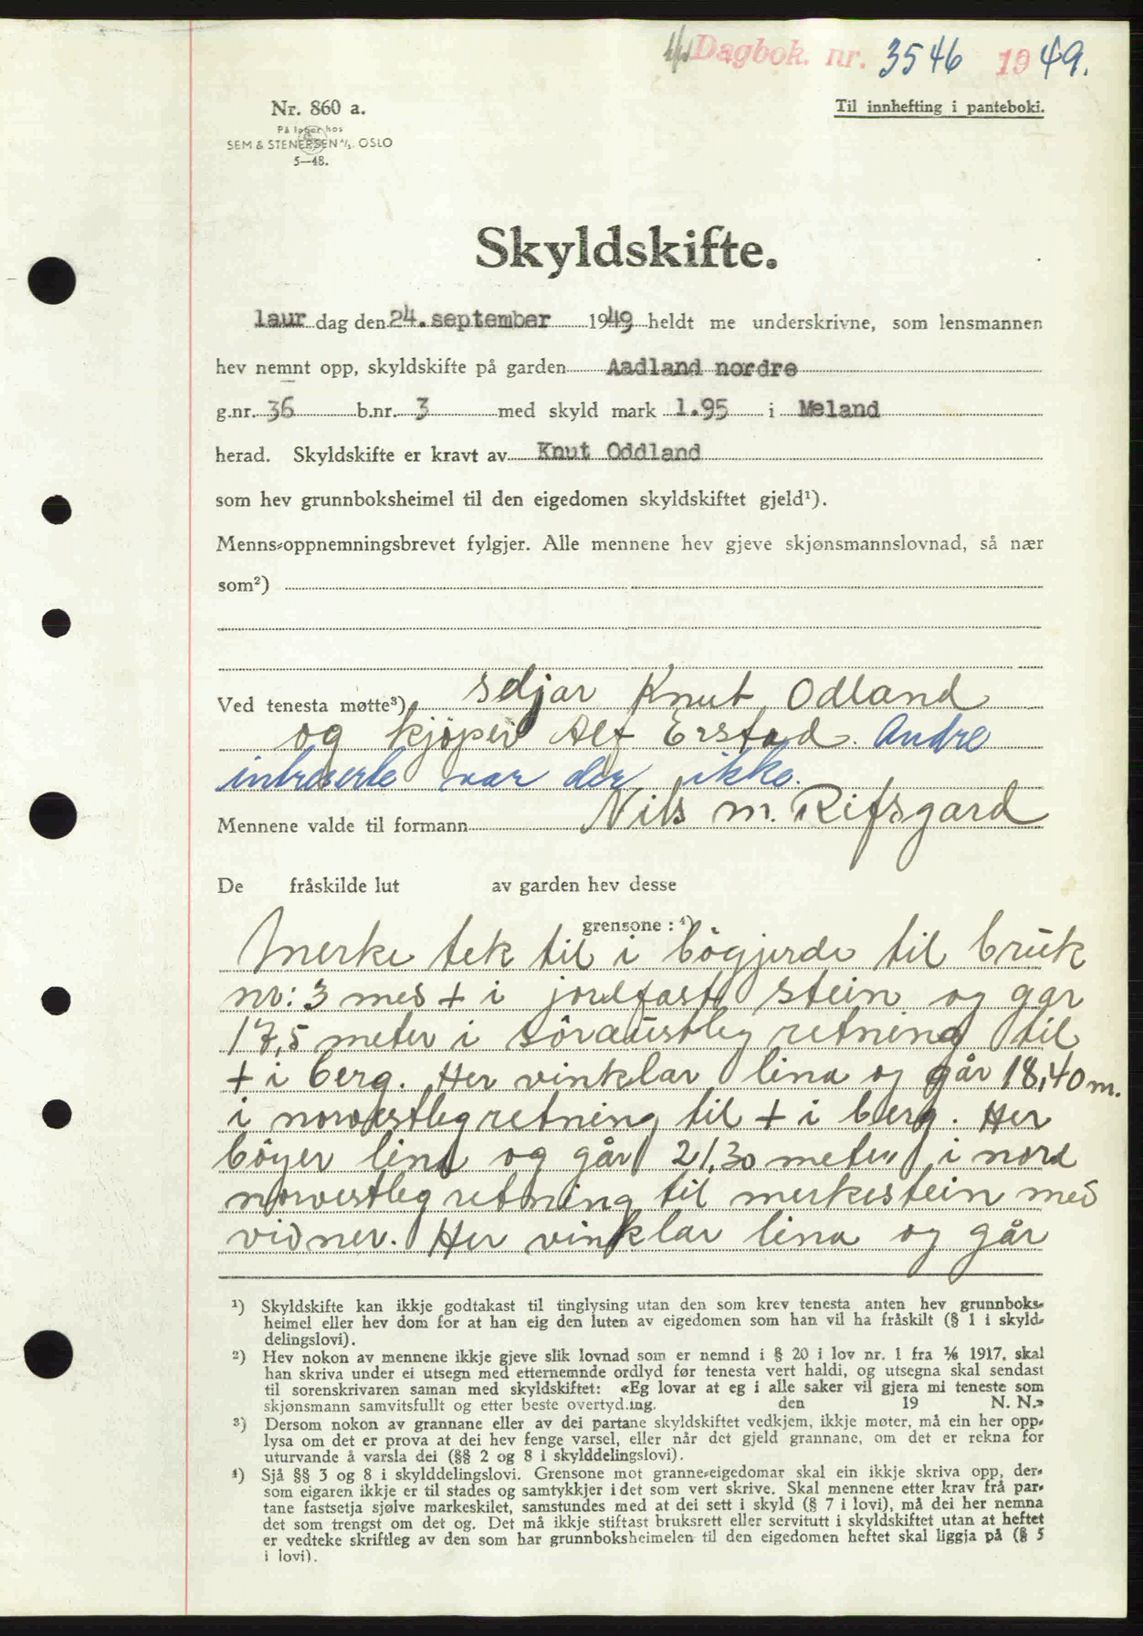 Dagbok. nr. 3546 1949.
Nr. 860 a.
Til innhefting i panteboki.
På lager hos
SEM & STENERSEN A/S. OSLO
5—48.
Skyldskifte.
laur dag den 24. september 1949 heldt me underskrivne, som lensmannen
hev nemnt opp, skyldskifte på garden Aadland nordre
g.nr. 36 b.nr. 3 med skyld mark 1.95 i Meland
herad. Skyldskifte er kravt av Knut Oddland
som hev grunnboksheimel til den eigedomen skyldskiftet gjeld¹).
Menns-oppnemningsbrevet fylgjer. Alle mennene hev gjeve skjønsmannslovnad, så nær
som²)
Ved tenesta møtte³) seljar Knut Odland
og kjøper Alf Erstad. Andre
intreserte var der ikke.
Mennene valde til formann Nils M. Rifsgard
De fråskilde lut av garden hev desse
grensone: ⁴)
Merke tek til i bögjerde til bruk
nr: 3 med + i jordfast stein og går
17,5 meter i söraustleg retning til
+ i berg. Her vinklar lina og går 18,40 m.
i norvestleg retning til + i berg. Her
böyer lina og går 21,30 meter i nord
norvestleg retning til merkestein med
vidner. Her vinklar lina og går
¹) Skyldskifte kan ikkje godtakast til tinglysing utan den som krev tenesta anten hev grunnboks-
heimel eller hev dom for at han eig den luten av eigedomen som han vil ha fråskilt (§ 1 i skyld-
delingslovi).
²) Hev nokon av mennene ikkje gjeve slik lovnad som er nemnd i § 20 i lov nr. 1 fra 1/6 1917, skal
han skriva under ei utsegn med etternemnde ordlyd før tenesta vert haldi, og utsegna skal sendast
til sorenskrivaren saman med skyldskiftet: «Eg lovar at eg i alle saker vil gjera mi teneste som
skjønsmann samvitsfullt og etter beste overtyding. den 19 N. N.»
³) Dersom nokon av grannane eller av dei partane skyldskiftet vedkjem, ikkje møter, må ein her opp-
lysa om det er prova at dei hev fenge varsel, eller når det gjeld grannane, om det er rekna for
uturvande å varsla dei (§§ 2 og 8 i skylddelingslovi).
⁴) Sjå §§ 3 og 8 i skylddelingslovi. Grensone mot granne-eigedomar skal ein ikkje skriva opp, der-
som eigaren ikkje er til stades og samtykkjer i det som vert skrive. Skal mennene etter krav frå par-
tane fastsetja sjølve markeskilet, samstundes med at dei sett i skyld (§ 7 i lovi), må dei her nemna
det som trengst om det og. Det må ikkje stiftast bruksrett eller servitutt i skyldskiftet utan at heftet
er vedteke skriftleg av den som har grunnboksheimelen til den eigedomen heftet skal liggja på (§ 5
i lovi).